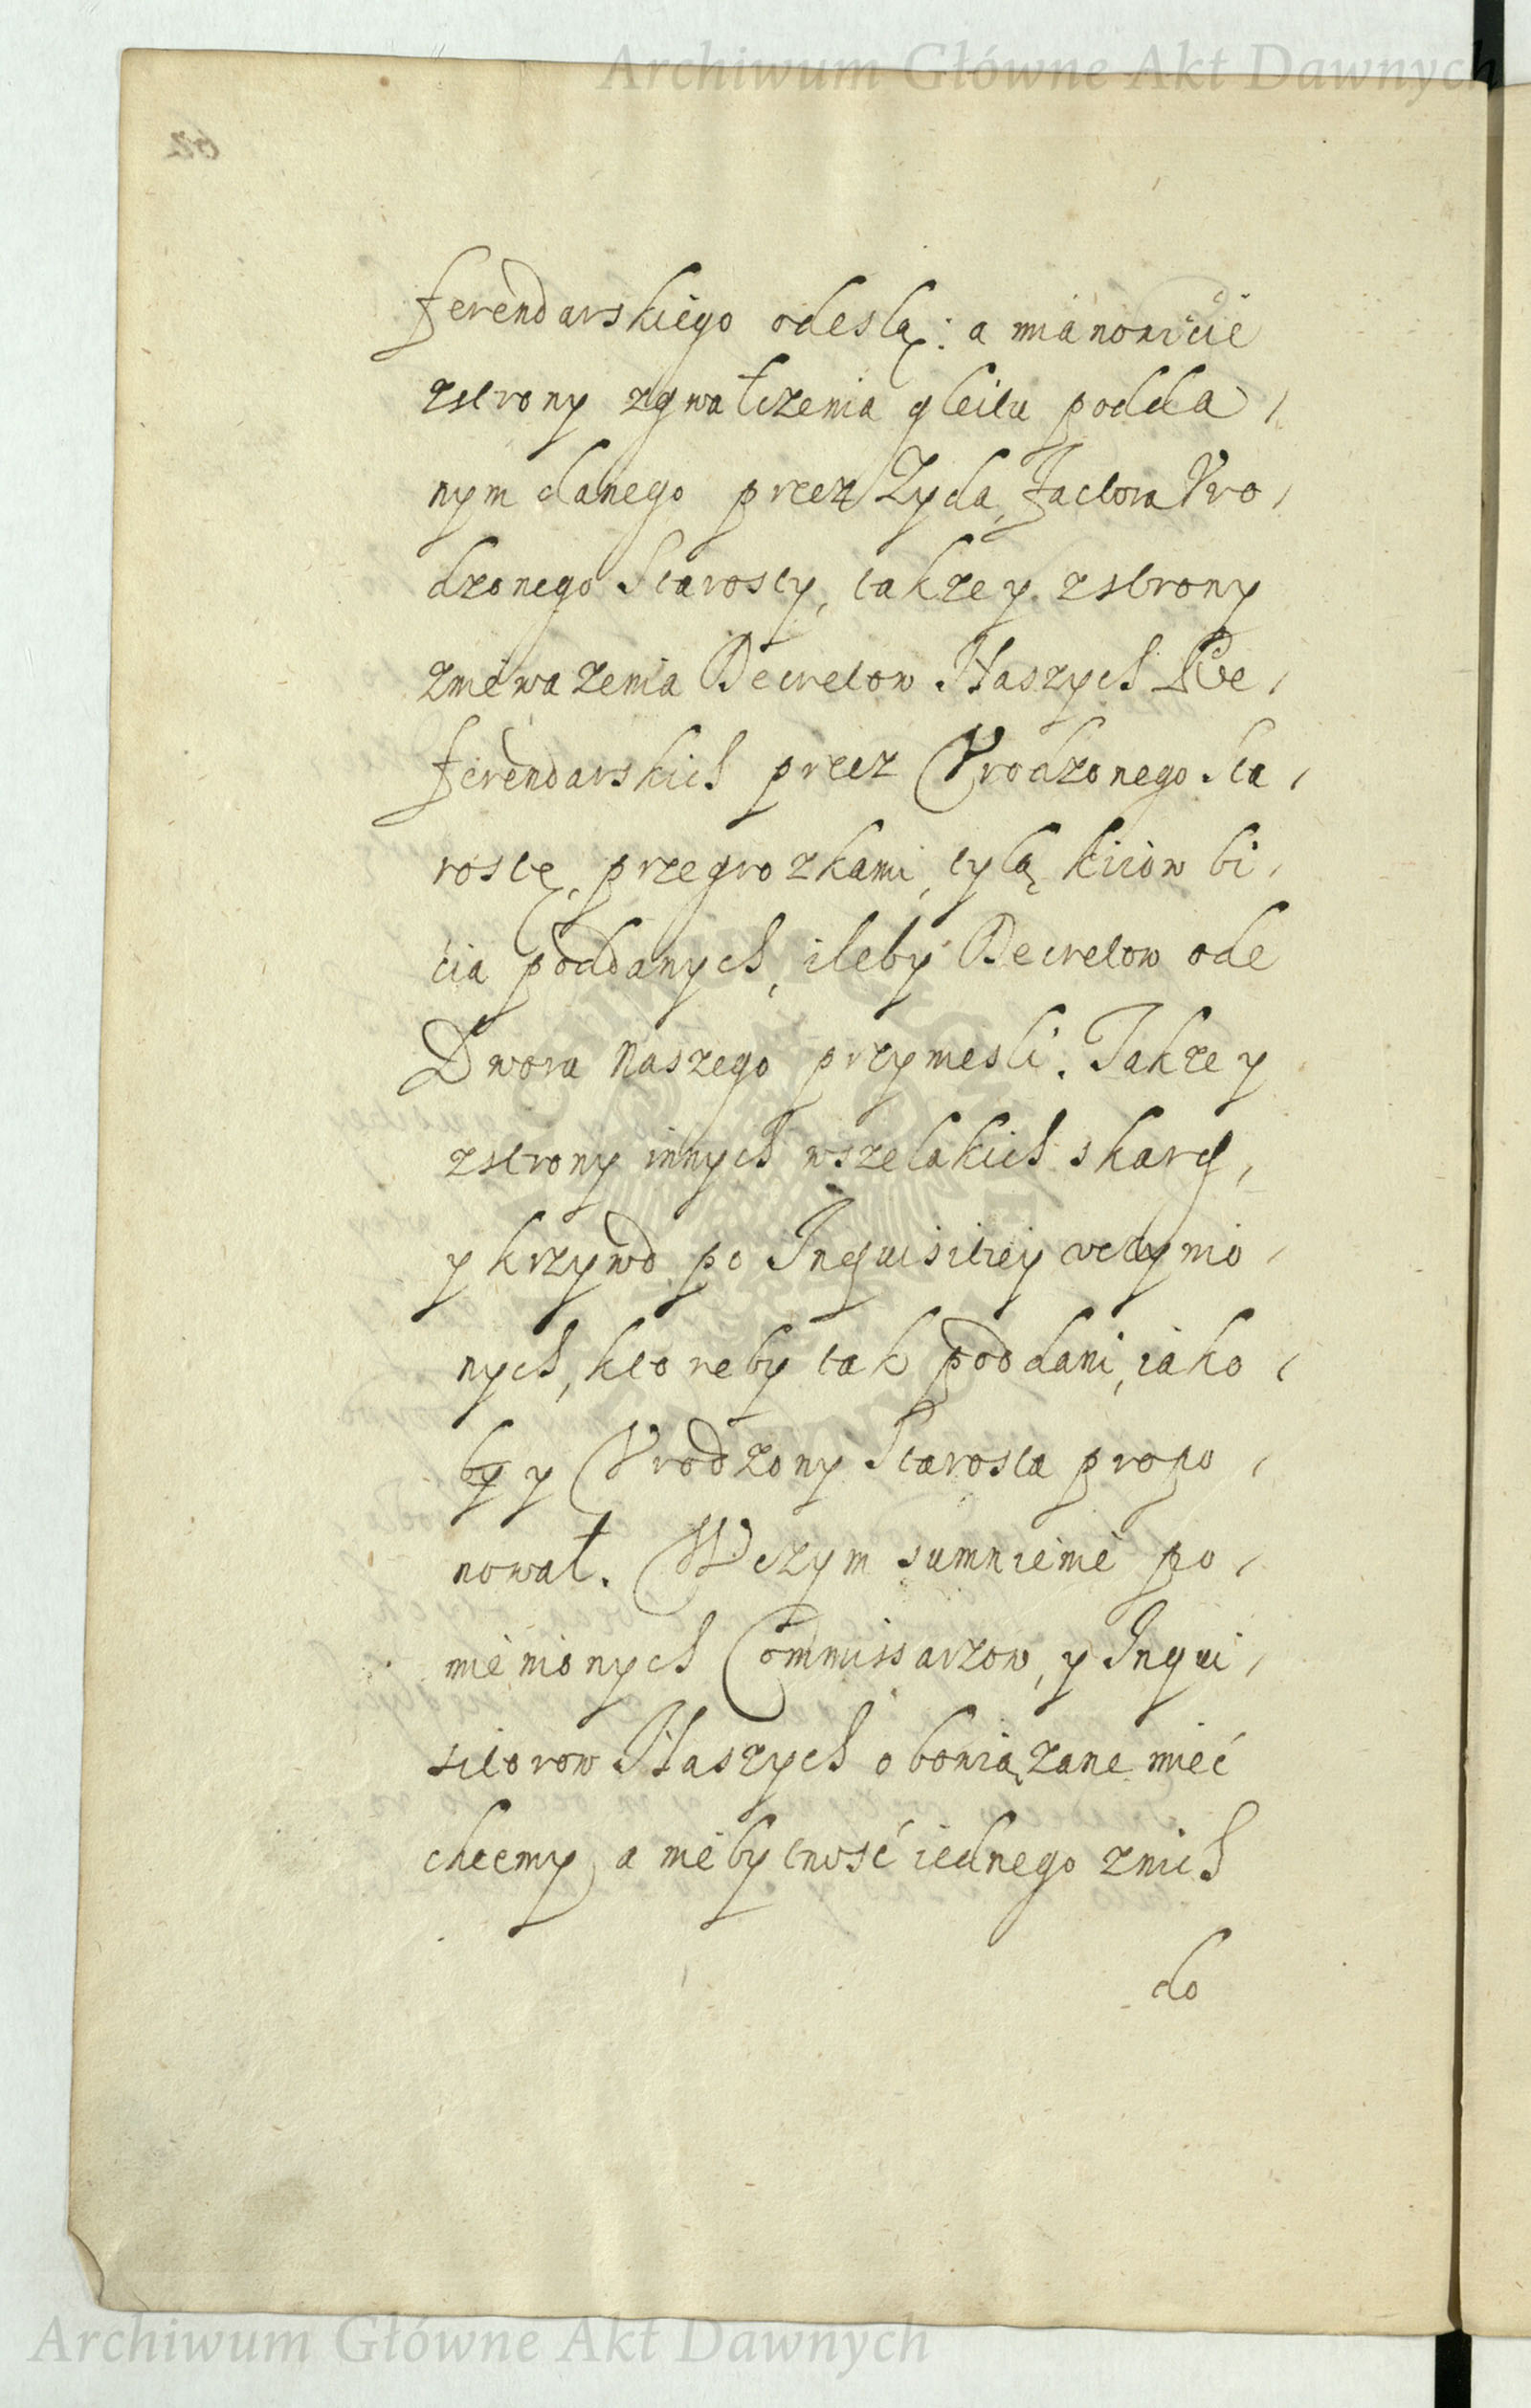 Archiwum Główne Akt Dawnych
ferendarskiego odeslą: a mianowicie
zstrony zgwałczenia gleitu podda,
nym danego przez Zyda, Factora Vro,
dzonego Starosty, takze y zstrony
zniewazenia Decretow Naszych Re,
ferendarskich przez Vrodzonego Sta,
rostę, przegrozkami, tylą kiiow bi,
cia poddanych, ileby Decretow ode
Dwora naszego przyniesli. Takze y
zstrony innych wszelakich skarg,
y krzywd po Inquisitiey uczynio,
nych, ktoreby tak poddani, iako,
by y Vrodzony Starosta propo,
nował. W czym sumnienie po,
mienionych Commissarzow, y Inqui,
sitorow Naszych obowiązane mieć
chcemy, a niebytność iednego znich
do
Archiwum Główne Akt Dawnych